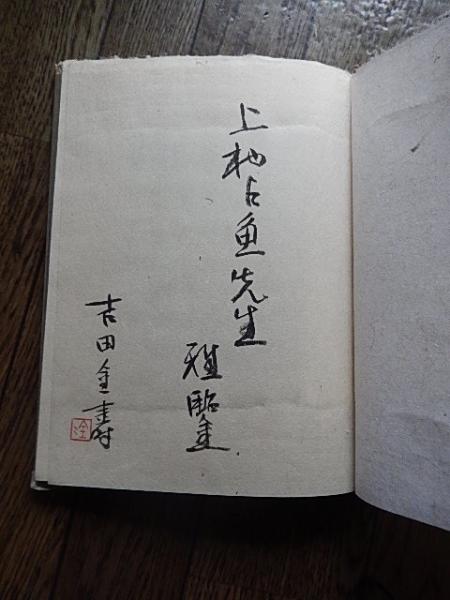 上村占魚先生
雅鑒
吉田金壽